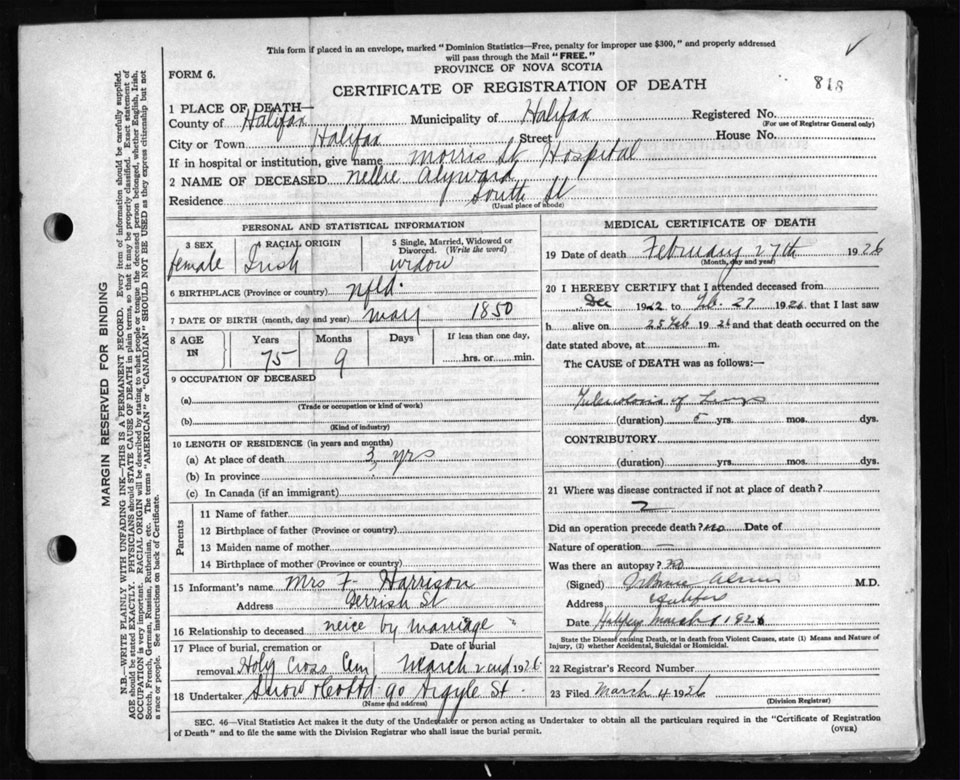 This form if placed in an envelope, marked "Dominion Statistics—Free, penalty for improper use $300," and properly addressed
will pass through the Mail "FREE."
FORM 6.
PROVINCE OF NOVA SCOTIA
CERTIFICATE OF REGISTRATION OF DEATH
818
1 PLACE OF DEATH—
County of Halifax Municipality of Halifax Registered No.
(For use of Registrar General only)
City or Town Halifax Street House No.
If in hospital or institution, give name Morris St Hospital
2 NAME OF DECEASED Nellie Alyward
Residence South St
(Usual place of abode)
PERSONAL AND STATISTICAL INFORMATION
3 SEX female
4 RACIAL ORIGIN Irish
5 Single, Married, Widowed or
Divorced. (Write the word)
widow
6 BIRTHPLACE (Province or country) nfld.
7 DATE OF BIRTH (month, day and year) may 1850
8 AGE IN Years 75 Months 9 Days If less than one day,
hrs. or min.
9 OCCUPATION OF DECEASED
(a)
(Trade or occupation or kind of work)
(b)
(Kind of industry)
10 LENGTH OF RESIDENCE (in years and months)
(a) At place of death 3 yrs
(b) In province
(c) In Canada (if an immigrant)
Parents
11 Name of father
12 Birthplace of father (Province or country)
13 Maiden name of mother
14 Birthplace of mother (Province or country)
15 Informant's name Mrs F. Harrison
Address Gerrish St
16 Relationship to deceased neice by marriage
17 Place of burial, cremation or
removal Holy Cross Cem
Date of burial
March 2nd 1926
18 Undertaker Snow & Co Ltd 90 Argyle St.
(Name and address)
MEDICAL CERTIFICATE OF DEATH
19 Date of death February 27th 1926
(Month, day and year)
20 I HEREBY CERTIFY that I attended deceased from
Dec 1922 to Feb. 27 1926, that I last saw
h alive on 25 Feb 1926 and that death occurred on the
date stated above, at m.
The CAUSE of DEATH was as follows:—
Tuberculosis of Lungs
(duration) 5 yrs. mos. dys.
CONTRIBUTORY
(duration) yrs. mos. dys.
21 Where was disease contracted if not at place of death?
?
Did an operation precede death? no Date of
Nature of operation —
Was there an autopsy? no
(Signed) M.D.
Address Halifax
Date Halifax March 1 1926
State the Disease causing Death, or in death from Violent Causes, state (1) Means and Nature of
Injury, (2) whether Accidental, Suicidal or Homicidal.
22 Registrar's Record Number
23 Filed March 4 1926
(Division Registrar)
SEC. 46—Vital Statistics Act makes it the duty of the Undertaker or person acting as Undertaker to obtain all the particulars required in the "Certificate of Registration
of Death" and to file the same with the Division Registrar who shall issue the burial permit.
(OVER)
MARGIN RESERVED FOR BINDING
N.B.—WRITE PLAINLY WITH UNFADING INK—THIS IS A PERMANENT RECORD. Every item of information should be carefully supplied.
AGE should be stated EXACTLY. PHYSICIANS should STATE CAUSE OF DEATH in plain terms, so that it may be properly classified. Exact statement of
OCCUPATION is very important. RACIAL ORIGIN will be described by stating to what people or tongue the deceased person belonged, whether English, Irish,
Scotch, French, German, Russian, Ruthenian, etc. The terms "AMERICAN" or "CANADIAN" SHOULD NOT BE USED as they express citizenship but not
a race or people. See instructions on back of Certificate.